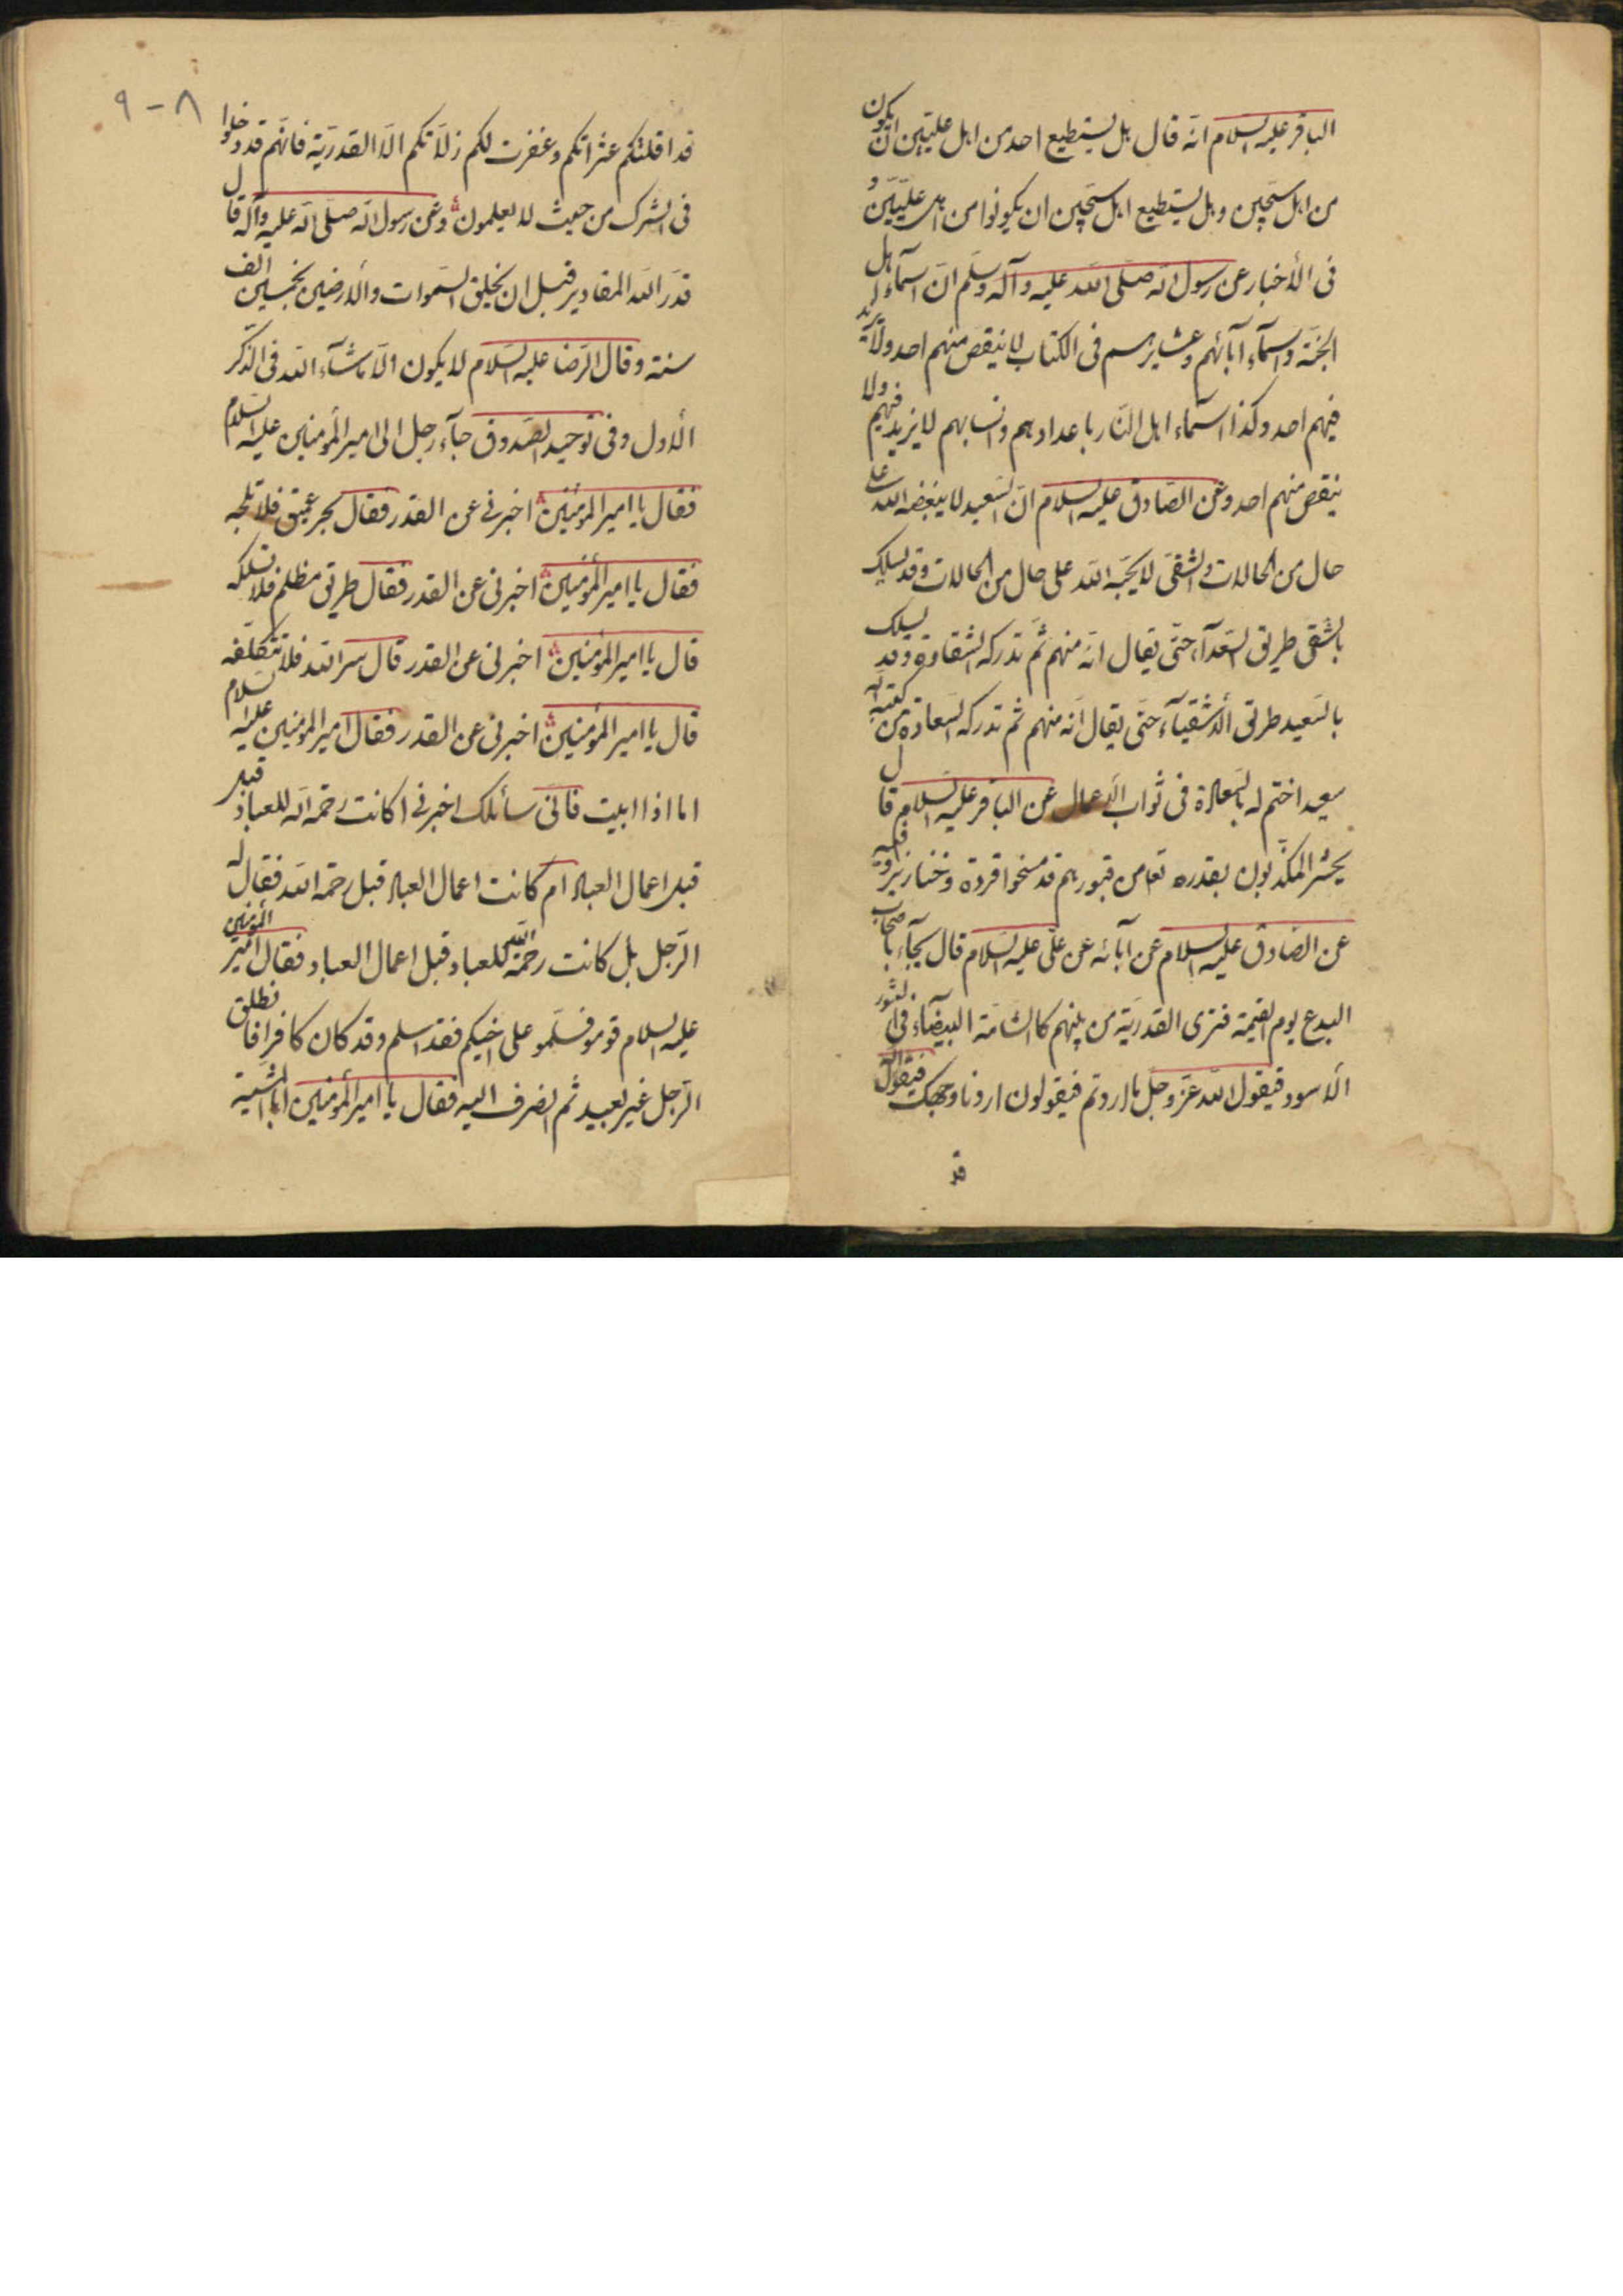 الباقر عليه السلام انّه قال هل يستطيع احد من اهل علّيّين ان يكون
من اهل سجّين و هل يستطيع اهل سجّين ان يكونوا من اهل علّيّين و
فى الأخبار عن رسول الله صلّى الله عليه وآله وسلّم انّ اسمآء اهل
الجنّة واسمآء آبائهم وعشايرهم فى الكتاب لا ينقص منهم احد ولا يزيد
فيهم احد وكذا اسمآء اهل النّار باعدادهم وانسابهم لا يزيد فيهم ولا
ينقص منهم احد وعن الصّادق عليه السلام انّ السّعيد لا يبغضه الله على
حال من الحالات والشقىّ لا يحبّه الله على حال من الحالات وقد يسلك
بالشقى طريق السّعدآء حتّى يقال انّه منهم ثمّ تدركه الشقاوة وقد يسلك
بالسّعيد طريق الأشقيآء حتّى يقال انّه منهم ثم تدركه السّعادة من كتبه الله
سعيدا ختم له بالسّعادة فى ثواب الأعمال عن الباقر عليه السّلام قال
يحشر المكذّبون بقدره تعا من قبورهم قد مسخوا قردة وخنازير وفيه
عن الصّادق عليه السلام عن آبائه عن علّى عليه السّلام قال يجآء باصحاب
البدع يوم القيمة فترى القدريّة من بينهم كالشّامة البيضآء فى الثور
الأسود فيقول الله عزّ وجلّ ما اردتم فيقولون اردنا وجهك فيقول
قد
٨ - ٩
قد اقلتكم عثراتكم وغفرت لكم زلّاتكم الّا القدريّة فانّهم قد دخلوا
فى الشرك من حيث لا يعلمون وعن رسول الله صلّى الله عليه وآله قال
قدّر الله المقادير قبل ان يخلق السّموات والأرضين بخمسين الف
سنة وقال الرّضا عليه السّلام لا يكون الّا ما شآء الله فى الذّكر
الأول وفى توحيد الصّدوق جآء رجل الى امير المؤمنين عليه السّلام
فقال يا امير المؤمنين اخبرنى عن القدر فقال بحر عميق فلا تلجه
فقال يا امير المؤمنين اخبرنى عن القدر فقال طريق مظلم فلا تسلكه
قال يا امير المؤمنين اخبرنى عن القدر قال سر الله فلا تتكلّفه
قال يا امير المؤمنين اخبرنى عن القدر فقال امير المؤمنين عليه السّلام
اما اذا ابيت فانّى سائلك اخبرنى اكانت رحمة الله للعباد قبل
قبل اعمال العباد ام كانت اعمال العباد قبل رحمة الله فقال له
الرّجل بل كانت رحمة الله للعباد قبل اعمال العباد فقال امير المؤمنين
عليه السلام قوموا فسلّموا على اخيكم فقد اسلم وقد كان كافرا فانطلق
الرّجل غير بعيد ثم انصرف اليه فقال يا امير المؤمنين ابالمشية